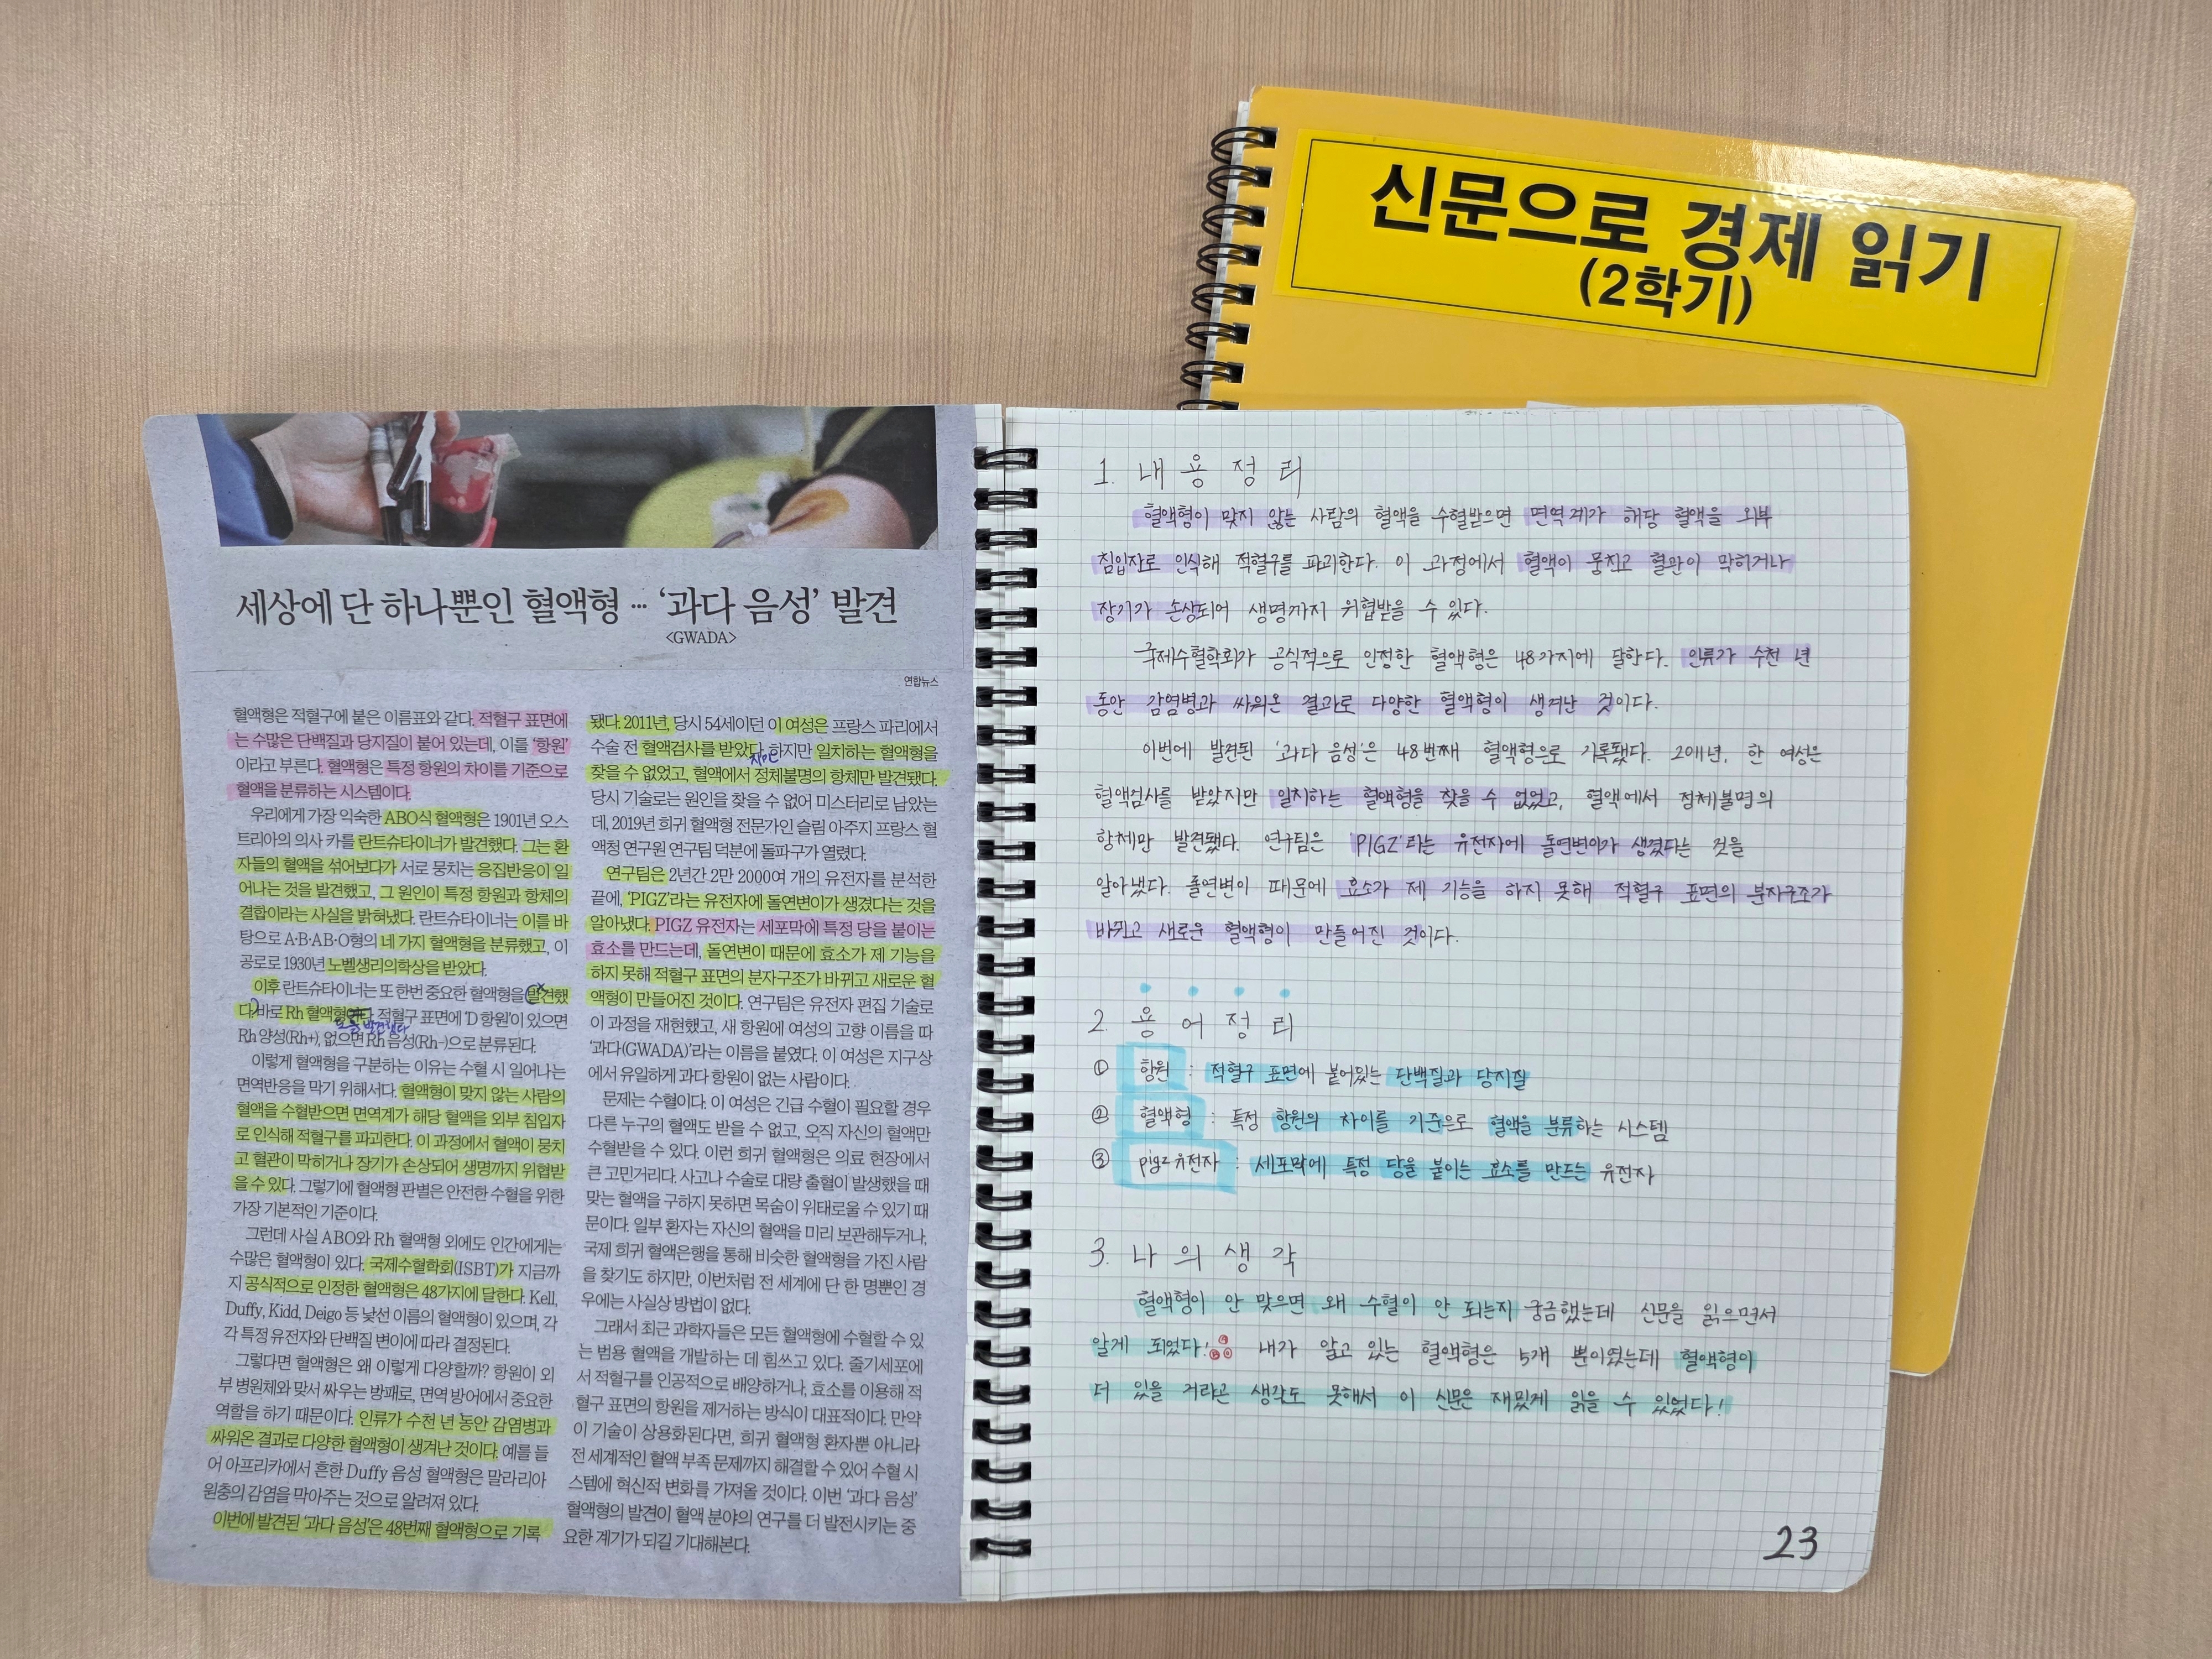 신문으로 경제 읽기
(2학기)
세상에 단 하나뿐인 혈액형 … ‘과다 음성’ 발견
<GWADA>
연합뉴스
혈액형은 적혈구에 붙은 이름표와 같다. 적혈구 표면에
는 수많은 단백질과 당지질이 붙어 있는데, 이를 ‘항원’
이라고 부른다. 혈액형은 특정 항원의 차이를 기준으로
혈액을 분류하는 시스템이다.
우리에게 가장 익숙한 ABO식 혈액형은 1901년 오스
트리아의 의사 카를 란트슈타이너가 발견했다. 그는 환
자들의 혈액을 섞어보다가 서로 뭉치는 응집반응이 일
어나는 것을 발견했고, 그 원인이 특정 항원과 항체의
결합이라는 사실을 밝혀냈다. 란트슈타이너는 이를 바
탕으로 A·B·AB·O형의 네 가지 혈액형을 분류했고, 이
공로로 1930년 노벨생리의학상을 받았다.
이후 란트슈타이너는 또 한번 중요한 혈액형을 발견했
다. 바로 Rh 혈액형이다. 적혈구 표면에 ‘D 항원’이 있으면
발견했다
Rh 양성(Rh+), 없으면 Rh 음성(Rh-)으로 분류된다.
이렇게 혈액형을 구분하는 이유는 수혈 시 일어나는
면역반응을 막기 위해서다. 혈액형이 맞지 않는 사람의
혈액을 수혈받으면 면역계가 해당 혈액을 외부 침입자
로 인식해 적혈구를 파괴한다. 이 과정에서 혈액이 뭉치
고 혈관이 막히거나 장기가 손상되어 생명까지 위협받
을 수 있다. 그렇기에 혈액형 판별은 안전한 수혈을 위한
가장 기본적인 기준이다.
그런데 사실 ABO와 Rh 혈액형 외에도 인간에게는
수많은 혈액형이 있다. 국제수혈학회(ISBT)가 지금까
지 공식적으로 인정한 혈액형은 48가지에 달한다. Kell,
Duffy, Kidd, Deigo 등 낯선 이름의 혈액형이 있으며, 각
각 특정 유전자와 단백질 변이에 따라 결정된다.
그렇다면 혈액형은 왜 이렇게 다양할까? 항원이 외
부 병원체와 맞서 싸우는 방패로, 면역 방어에서 중요한
역할을 하기 때문이다. 인류가 수천 년 동안 감염병과
싸워온 결과로 다양한 혈액형이 생겨난 것이다. 예를 들
어 아프리카에서 흔한 Duffy 음성 혈액형은 말라리아
원충의 감염을 막아주는 것으로 알려져 있다.
이번에 발견된 ‘과다 음성’은 48번째 혈액형으로 기록
됐다. 2011년, 당시 54세이던 이 여성은 프랑스 파리에서
수술 전 혈액검사를 받았다. 하지만 일치하는 혈액형을
찾을 수 없었고, 혈액에서 정체불명의 항체만 발견됐다.
당시 기술로는 원인을 찾을 수 없어 미스터리로 남았는
데, 2019년 희귀 혈액형 전문가인 슬림 아주지 프랑스 혈
액청 연구원 연구팀 덕분에 돌파구가 열렸다.
연구팀은 2년간 2만 2000여 개의 유전자를 분석한
끝에, ‘PIGZ’라는 유전자에 돌연변이가 생겼다는 것을
알아냈다. PIGZ 유전자는 세포막에 특정 당을 붙이는
효소를 만드는데, 돌연변이 때문에 효소가 제 기능을
하지 못해 적혈구 표면의 분자구조가 바뀌고 새로운 혈
액형이 만들어진 것이다. 연구팀은 유전자 편집 기술로
이 과정을 재현했고, 새 항원에 여성의 고향 이름을 따
‘과다(GWADA)’라는 이름을 붙였다. 이 여성은 지구상
에서 유일하게 과다 항원이 없는 사람이다.
문제는 수혈이다. 이 여성은 긴급 수혈이 필요할 경우
다른 누구의 혈액도 받을 수 없고, 오직 자신의 혈액만
수혈받을 수 있다. 이런 희귀 혈액형은 의료 현장에서
큰 고민거리다. 사고나 수술로 대량 출혈이 발생했을 때
맞는 혈액을 구하지 못하면 목숨이 위태로울 수 있기 때
문이다. 일부 환자는 자신의 혈액을 미리 보관해두거나,
국제 희귀 혈액은행을 통해 비슷한 혈액형을 가진 사람
을 찾기도 하지만, 이번처럼 전 세계에 단 한 명뿐인 경
우에는 사실상 방법이 없다.
그래서 최근 과학자들은 모든 혈액형에 수혈할 수 있
는 범용 혈액을 개발하는 데 힘쓰고 있다. 줄기세포에
서 적혈구를 인공적으로 배양하거나, 효소를 이용해 적
혈구 표면의 항원을 제거하는 방식이 대표적이다. 만약
이 기술이 상용화된다면, 희귀 혈액형 환자뿐 아니라
전 세계적인 혈액 부족 문제까지 해결할 수 있어 수혈 시
스템에 혁신적 변화를 가져올 것이다. 이번 ‘과다 음성’
혈액형의 발견이 혈액 분야의 연구를 더 발전시키는 중
요한 계기가 되길 기대해본다.
1. 내용정리
혈액형이 맞지 않는 사람의 혈액을 수혈받으면 면역계가 해당 혈액을 외부
침입자로 인식해 적혈구를 파괴한다. 이 과정에서 혈액이 뭉치고 혈관이 막히거나
장기가 손상되어 생명까지 위협받을 수 있다.
국제수혈학회가 공식적으로 인정한 혈액형은 48가지에 달한다. 인류가 수천 년
동안 감염병과 싸워온 결과로 다양한 혈액형이 생겨난 것이다.
이번에 발견된 '과다 음성'은 48번째 혈액형으로 기록됐다. 2011년, 한 여성은
혈액검사를 받았지만 일치하는 혈액형을 찾을 수 없었고, 혈액에서 정체불명의
항체만 발견됐다. 연구팀은 'PIGZ'라는 유전자에 돌연변이가 생겼다는 것을
알아냈다. 돌연변이 때문에 효소가 제 기능을 하지 못해 적혈구 표면의 분자구조가
바뀌고 새로운 혈액형이 만들어진 것이다.
2. 용어정리
① 항원 : 적혈구 표면에 붙어있는 단백질과 당지질
② 혈액형 : 특정 항원의 차이를 기준으로 혈액을 분류하는 시스템
③ pigz유전자 : 세포막에 특정 당을 붙이는 효소를 만드는 유전자
3. 나의생각
혈액형이 안 맞으면 왜 수혈이 안 되는지 궁금했는데 신문을 읽으면서
알게 되었다! 내가 알고 있는 혈액형은 5개 뿐이였는데 혈액형이
더 있을 거라곤 생각도 못해서 이 신문은 재밌게 읽을 수 있었다!
23